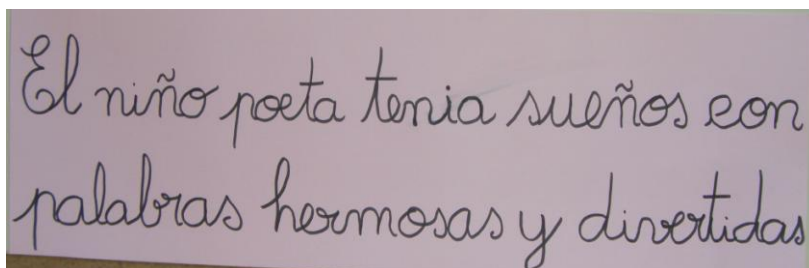 El niño poeta tenia sueños con
palabras hermosas y divertidas